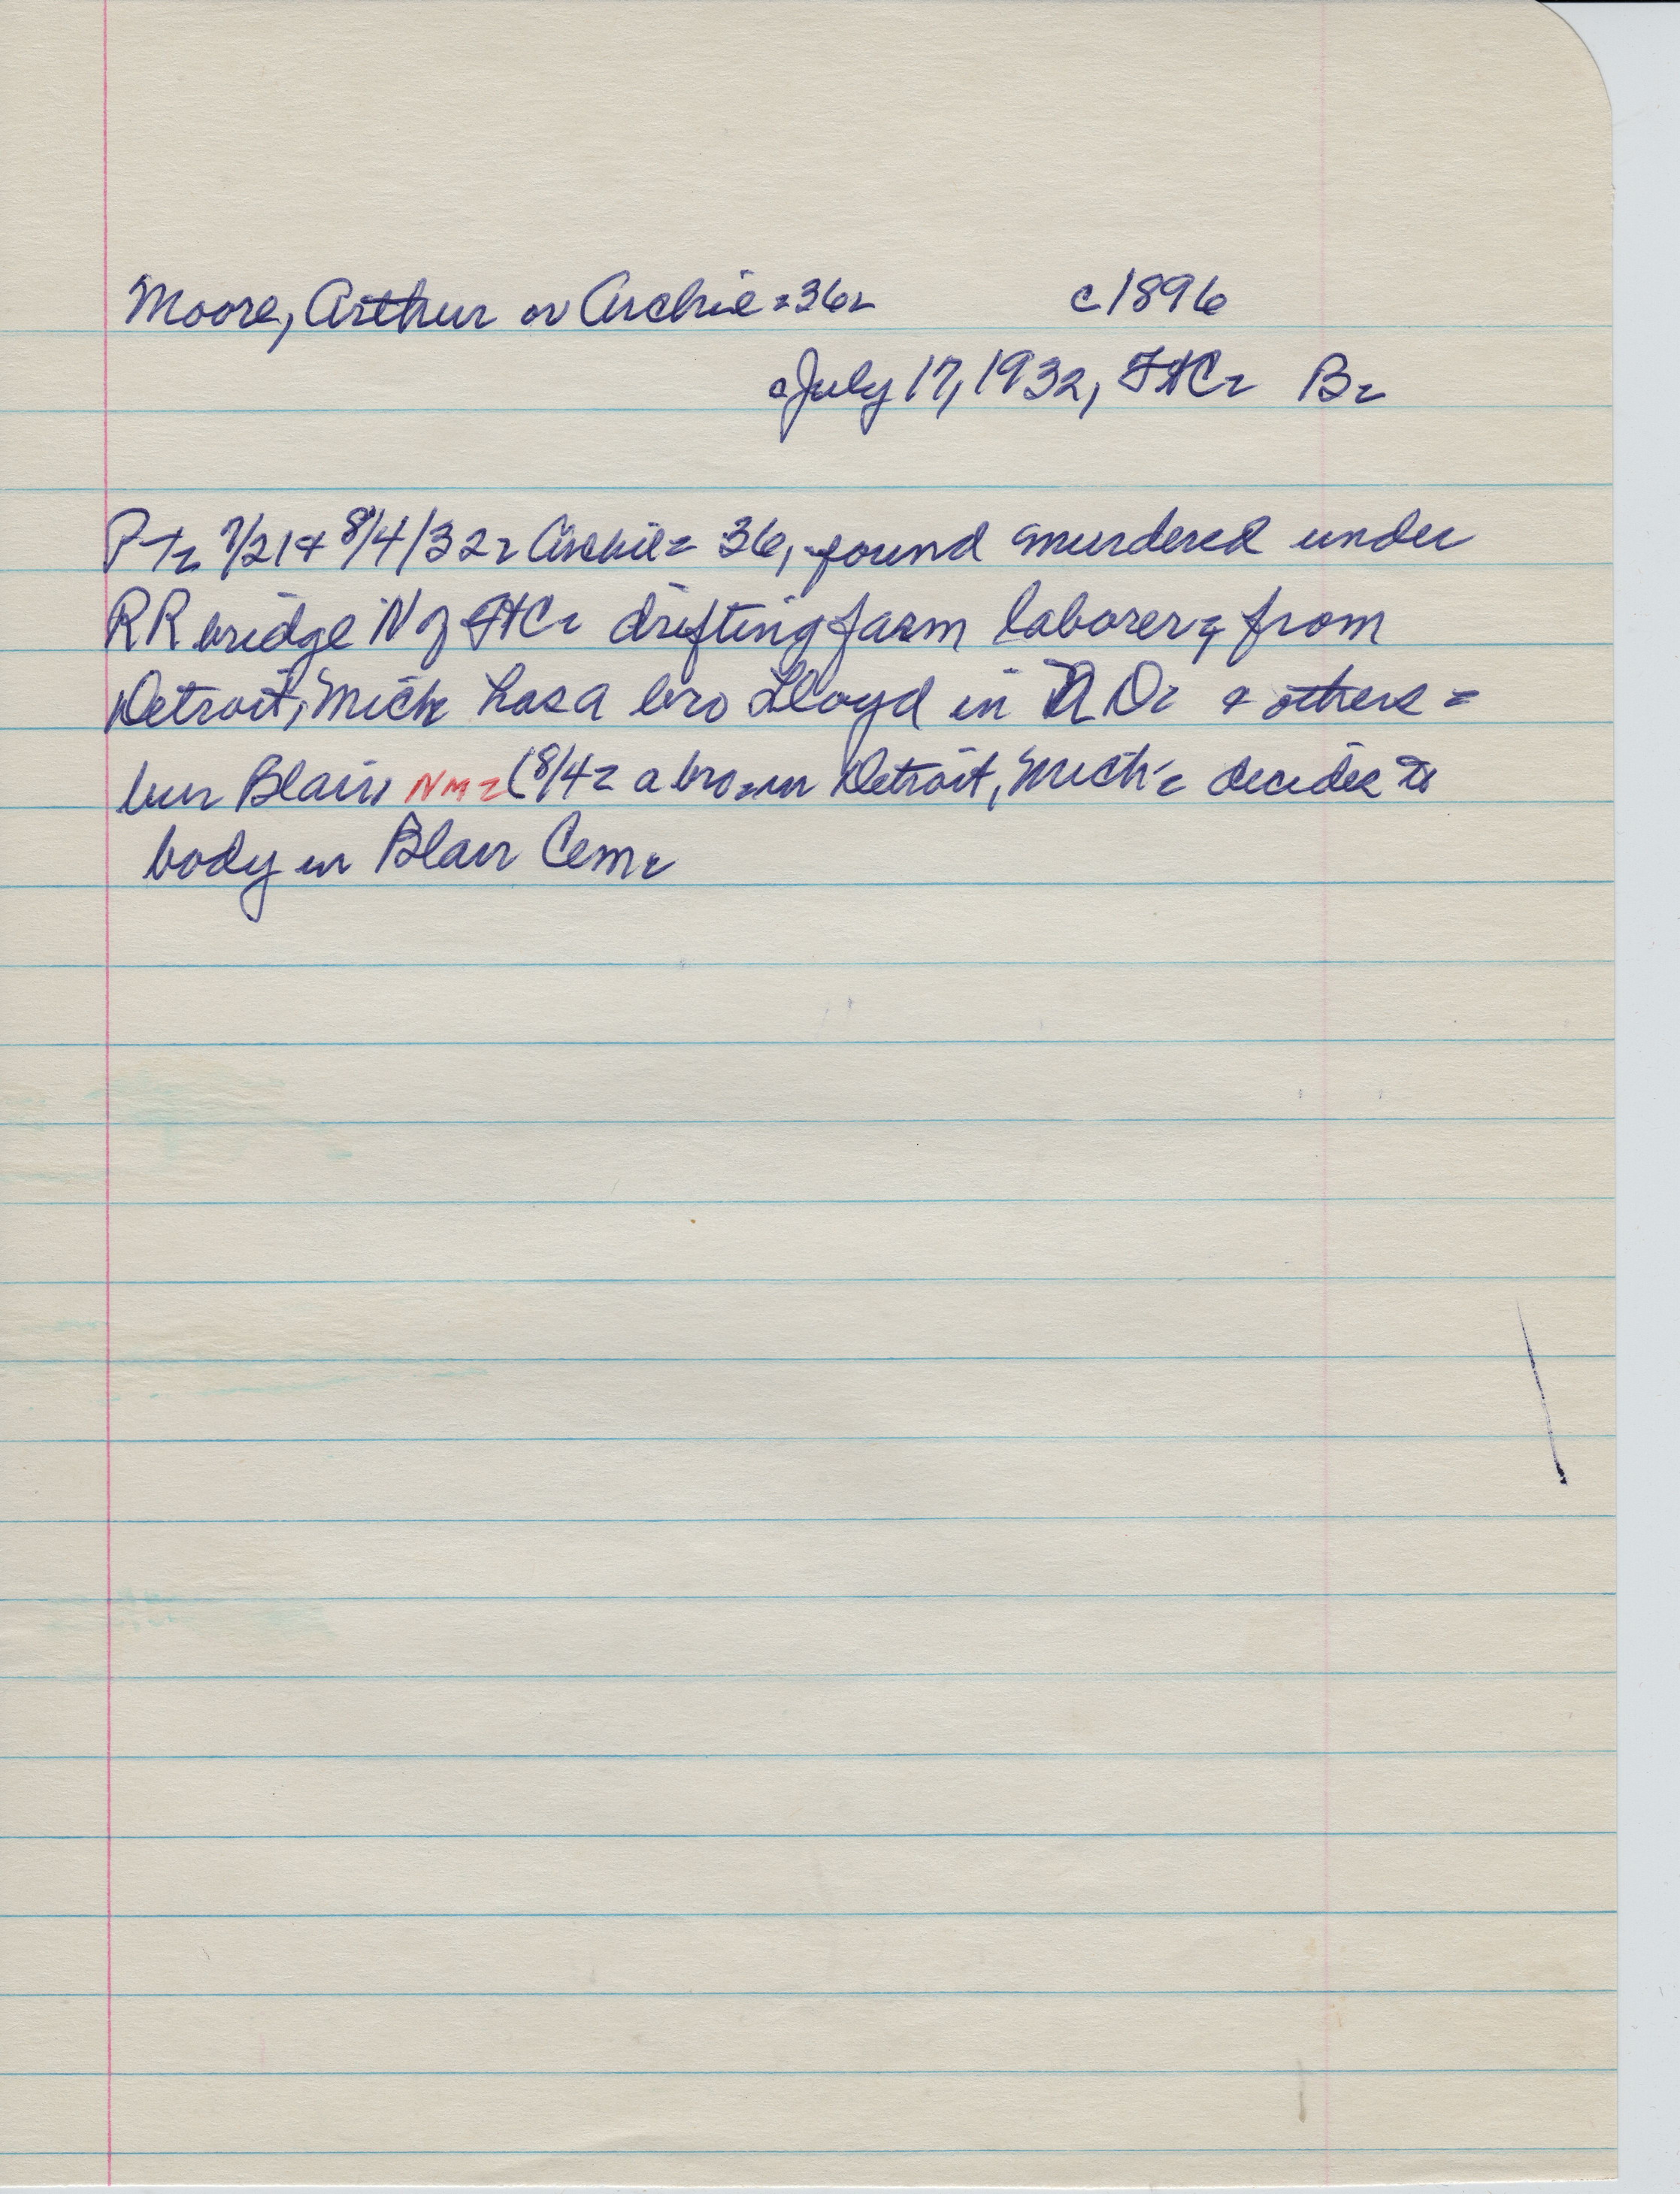 Moore, Arthur or Archie = 36 - c1896
July 17, 1932, FtC - B -
P T - 7/21 + 8/4/32 - Archie = 36, found murdered under
RR bridge N of FtC - drifting farm laborer & from
Detroit, Mich has a bro Lloyd in N D - & others =
bur Blair, NM = (8/4 = a bro in Detroit, Mich - decides to
body in Blair Cem -